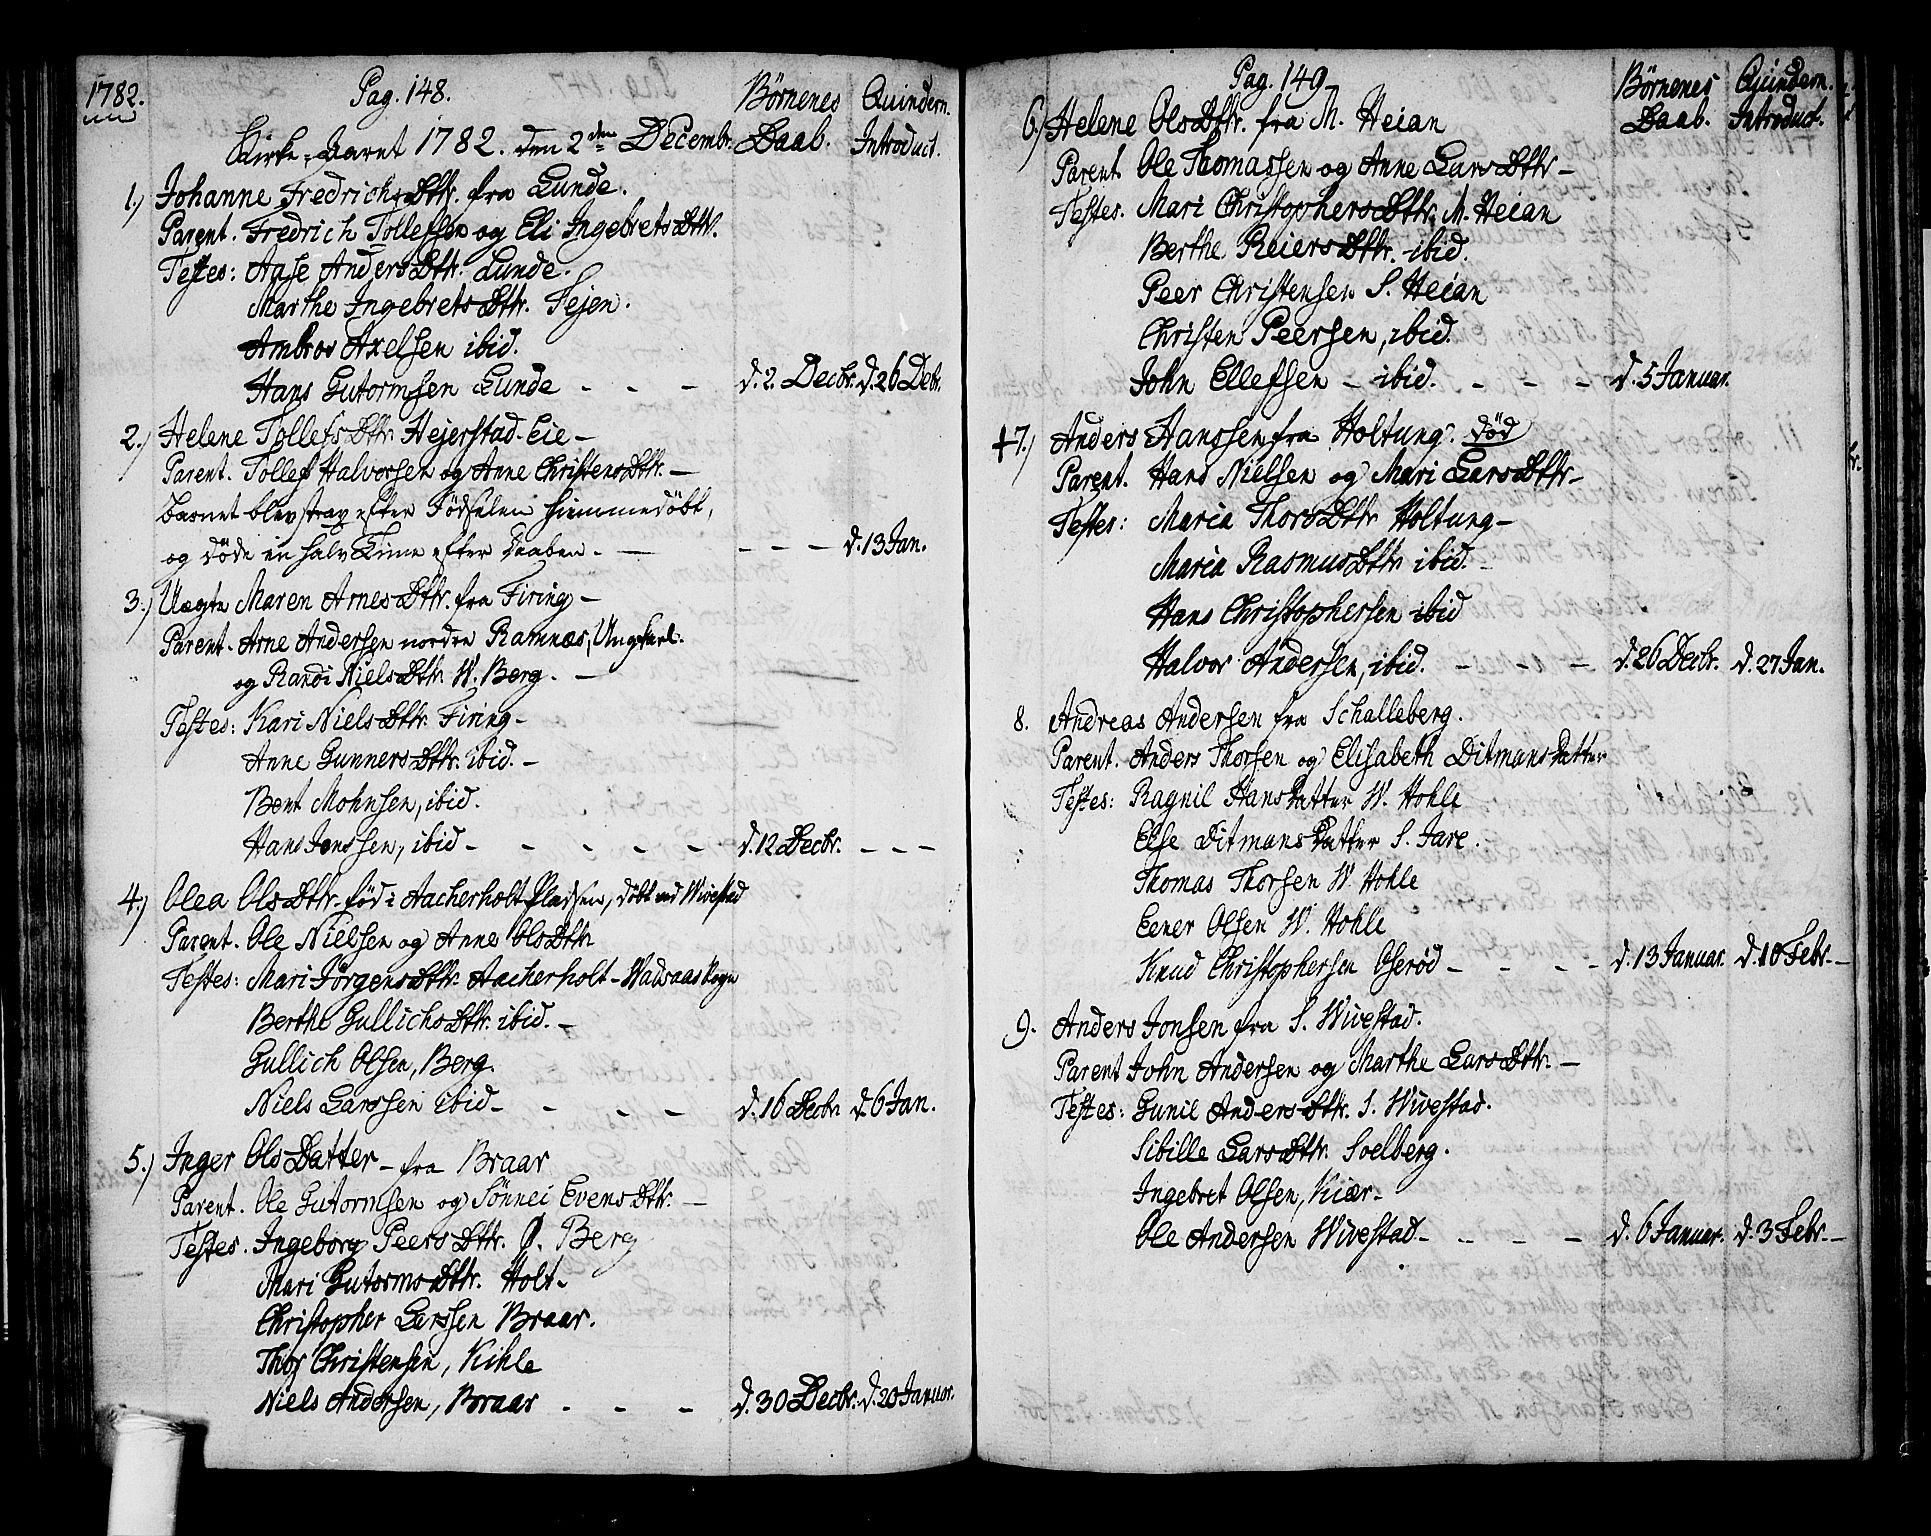 1782.
Pag. 148.
Børnenes Daab.
Quindern. Introduct.
Kirke-Aaret 1782. den 2den Decembr.
1.) Johanne FredrichsDttr. fra Lunde.
Parent. Fredrich Tollefsen og Eli IngebretsDttr.
Testes: Aase AndersDttr. Lunde.
Marthe IngebretsDttr. Fejen.
Ambros Axelsen ibid.
Hans Gutormsen Lunde - - - d. 2. Decbr. d. 26 Debr.
2.) Helene TollefsDttr Hejerstad-Eie -
Parent. Tollef Halvorsen og Anne ChristensDttr. -
Barnet blev strax efter Fødselen hiemmedøbt,
og døde en halv Time efter Daaben. - - - - d. 13 Jan.
3.) Uægte Maren ArnesDttr. fra Firing -
Parent. Arne Andersen nordre Ramnæs, Ungkarl.
og Randi NielsDttr. W. Berg. -
Testes: Kari NielsDttr. Firing -
Anne GunnersDttr. ibid. -
Bent Mohnsen, ibid.
Hans Jonssen, ibid - - - - - d. 12 Decbr. - - -
4.) Olea OlsDttr. fød i Aacherholt Pladsen, døbt ved Wivestad
Parent. Ole Nielsen og Anne OlsDttr
Testes: Mari JørgensDttr. Aacherholt - Wadsaas Sogn
Berthe GullichsDttr. ibid. -
Gullich Olsen, Berg.
Niels Larssen ibid - - - - d. 16 Decbr d. 6 Jan.
5.) Inger OlsDatter - fra Braar
Parent. Ole Gutormsen og Sønnei EvensDttr. -
Testes. Ingeborg PeersDttr. Ø. Berg
Mari GutormsDttr. Holt -
Christopher Lerssen Braar.
Thor Christensen, Kihle
Niels Andersen, Braar - - - d. 30 Decbr. d. 20 Januar.
Pag. 149
Børnenes Daab.
Quindern. Introduct.
6.) Helene OlsDttr. fra M. Heian
Parent. Ole Thomassen og Anne LarsDttr -
Testes. Mari ChristophersDttr. M. Heian
Berthe ReiersDttr. ibid.
Peer Christensen S. Heian
Christen Peersen, ibid.
John Ellefsen - ibid. - - - d. 5 Januar.
†7.) Anders Hanssen fra Holtung. død
Parent. Hans Nielsen og Mari LarsDttr -
Testes: Maria ThorsDttr Holtung -
Maria RasmusDttr ibid. -
Hans Christophersen ibid
Halvor Andersen, ibid. - - - d. 26 Decbr. d. 27 Jan.
8. Andreas Andersen fra Schalleberg.
Parent. Anders Thorsen og Elisabeth DitmansDatter
Testes: Ragnil HansDatter W. Hohle
Else DitmansDatter S. Jare.
Thomas Thorsen W. Hohle
Eener Olsen W. Hohle
Knud Christophersen Oserød - - - - d. 13 Januar. d. 10 Febr. -
9. Anders Jonsen fra S. Wivestad.
Parent John Andersen og Marthe LarsDttr. -
Testes: Gunil AndersDttr. S. Wivestad.
Sibille LarsDttr. Soelberg.
Ingebret Olsen, Kiær -
Ole Andersen Wivestad - - - - d. 6 Januar. d. 3 Febr. -